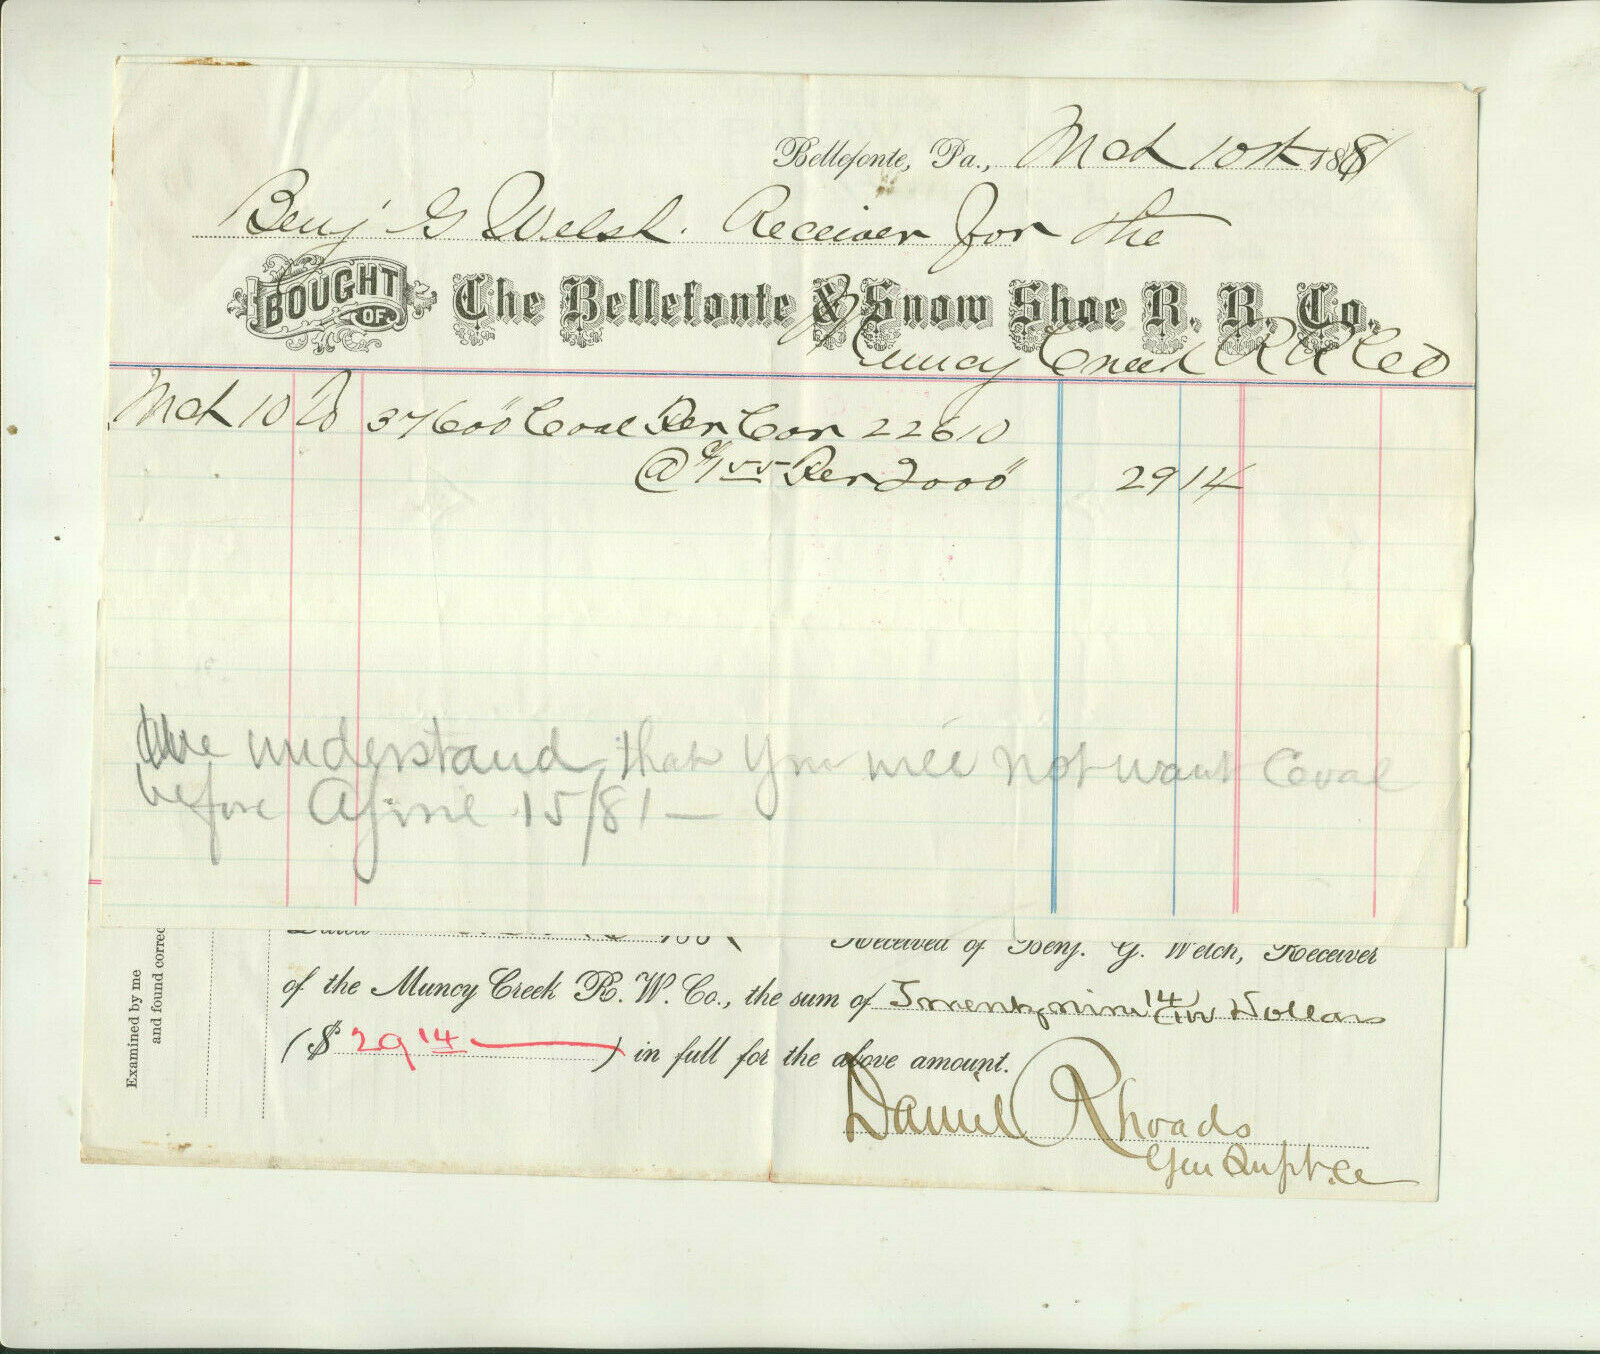 Bellefonte, Pa., Mch 10th 1881
Benj G Welsh. Receiver for the
BOUGHT OF The Bellefonte & Snow Shoe R. R. Co.
Muncy Creek R R Co
Mch 10 To 37600" Coal Per Car 22610
@ $1 55 Per 2000" 29 14
We understand that you will not want Coal
before April 15/81 —
Examined by me
and found correc
Dated 188 Received of Benj. G. Welch, Receiver
of the Muncy Creek R. W. Co., the sum of Twenty nine 14/100 Dollars
($ 29 14 ) in full for the above amount.
Daniel Rhoads
Gen Supt.